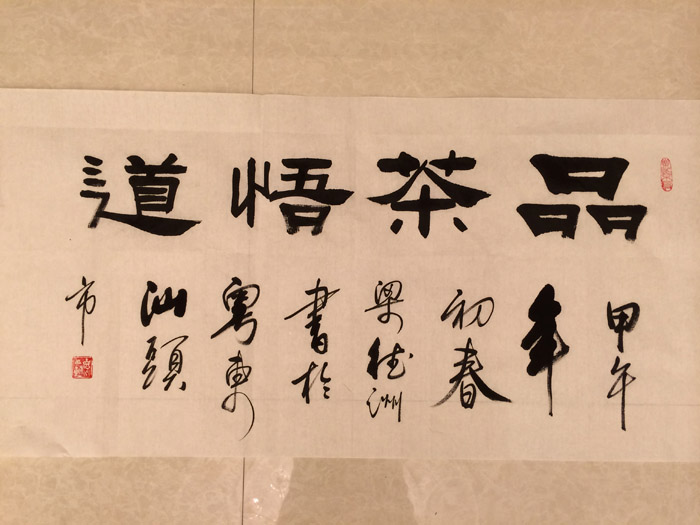 品茶悟道
甲午
年
初春
梁德洲
書於
粵東
汕頭
市